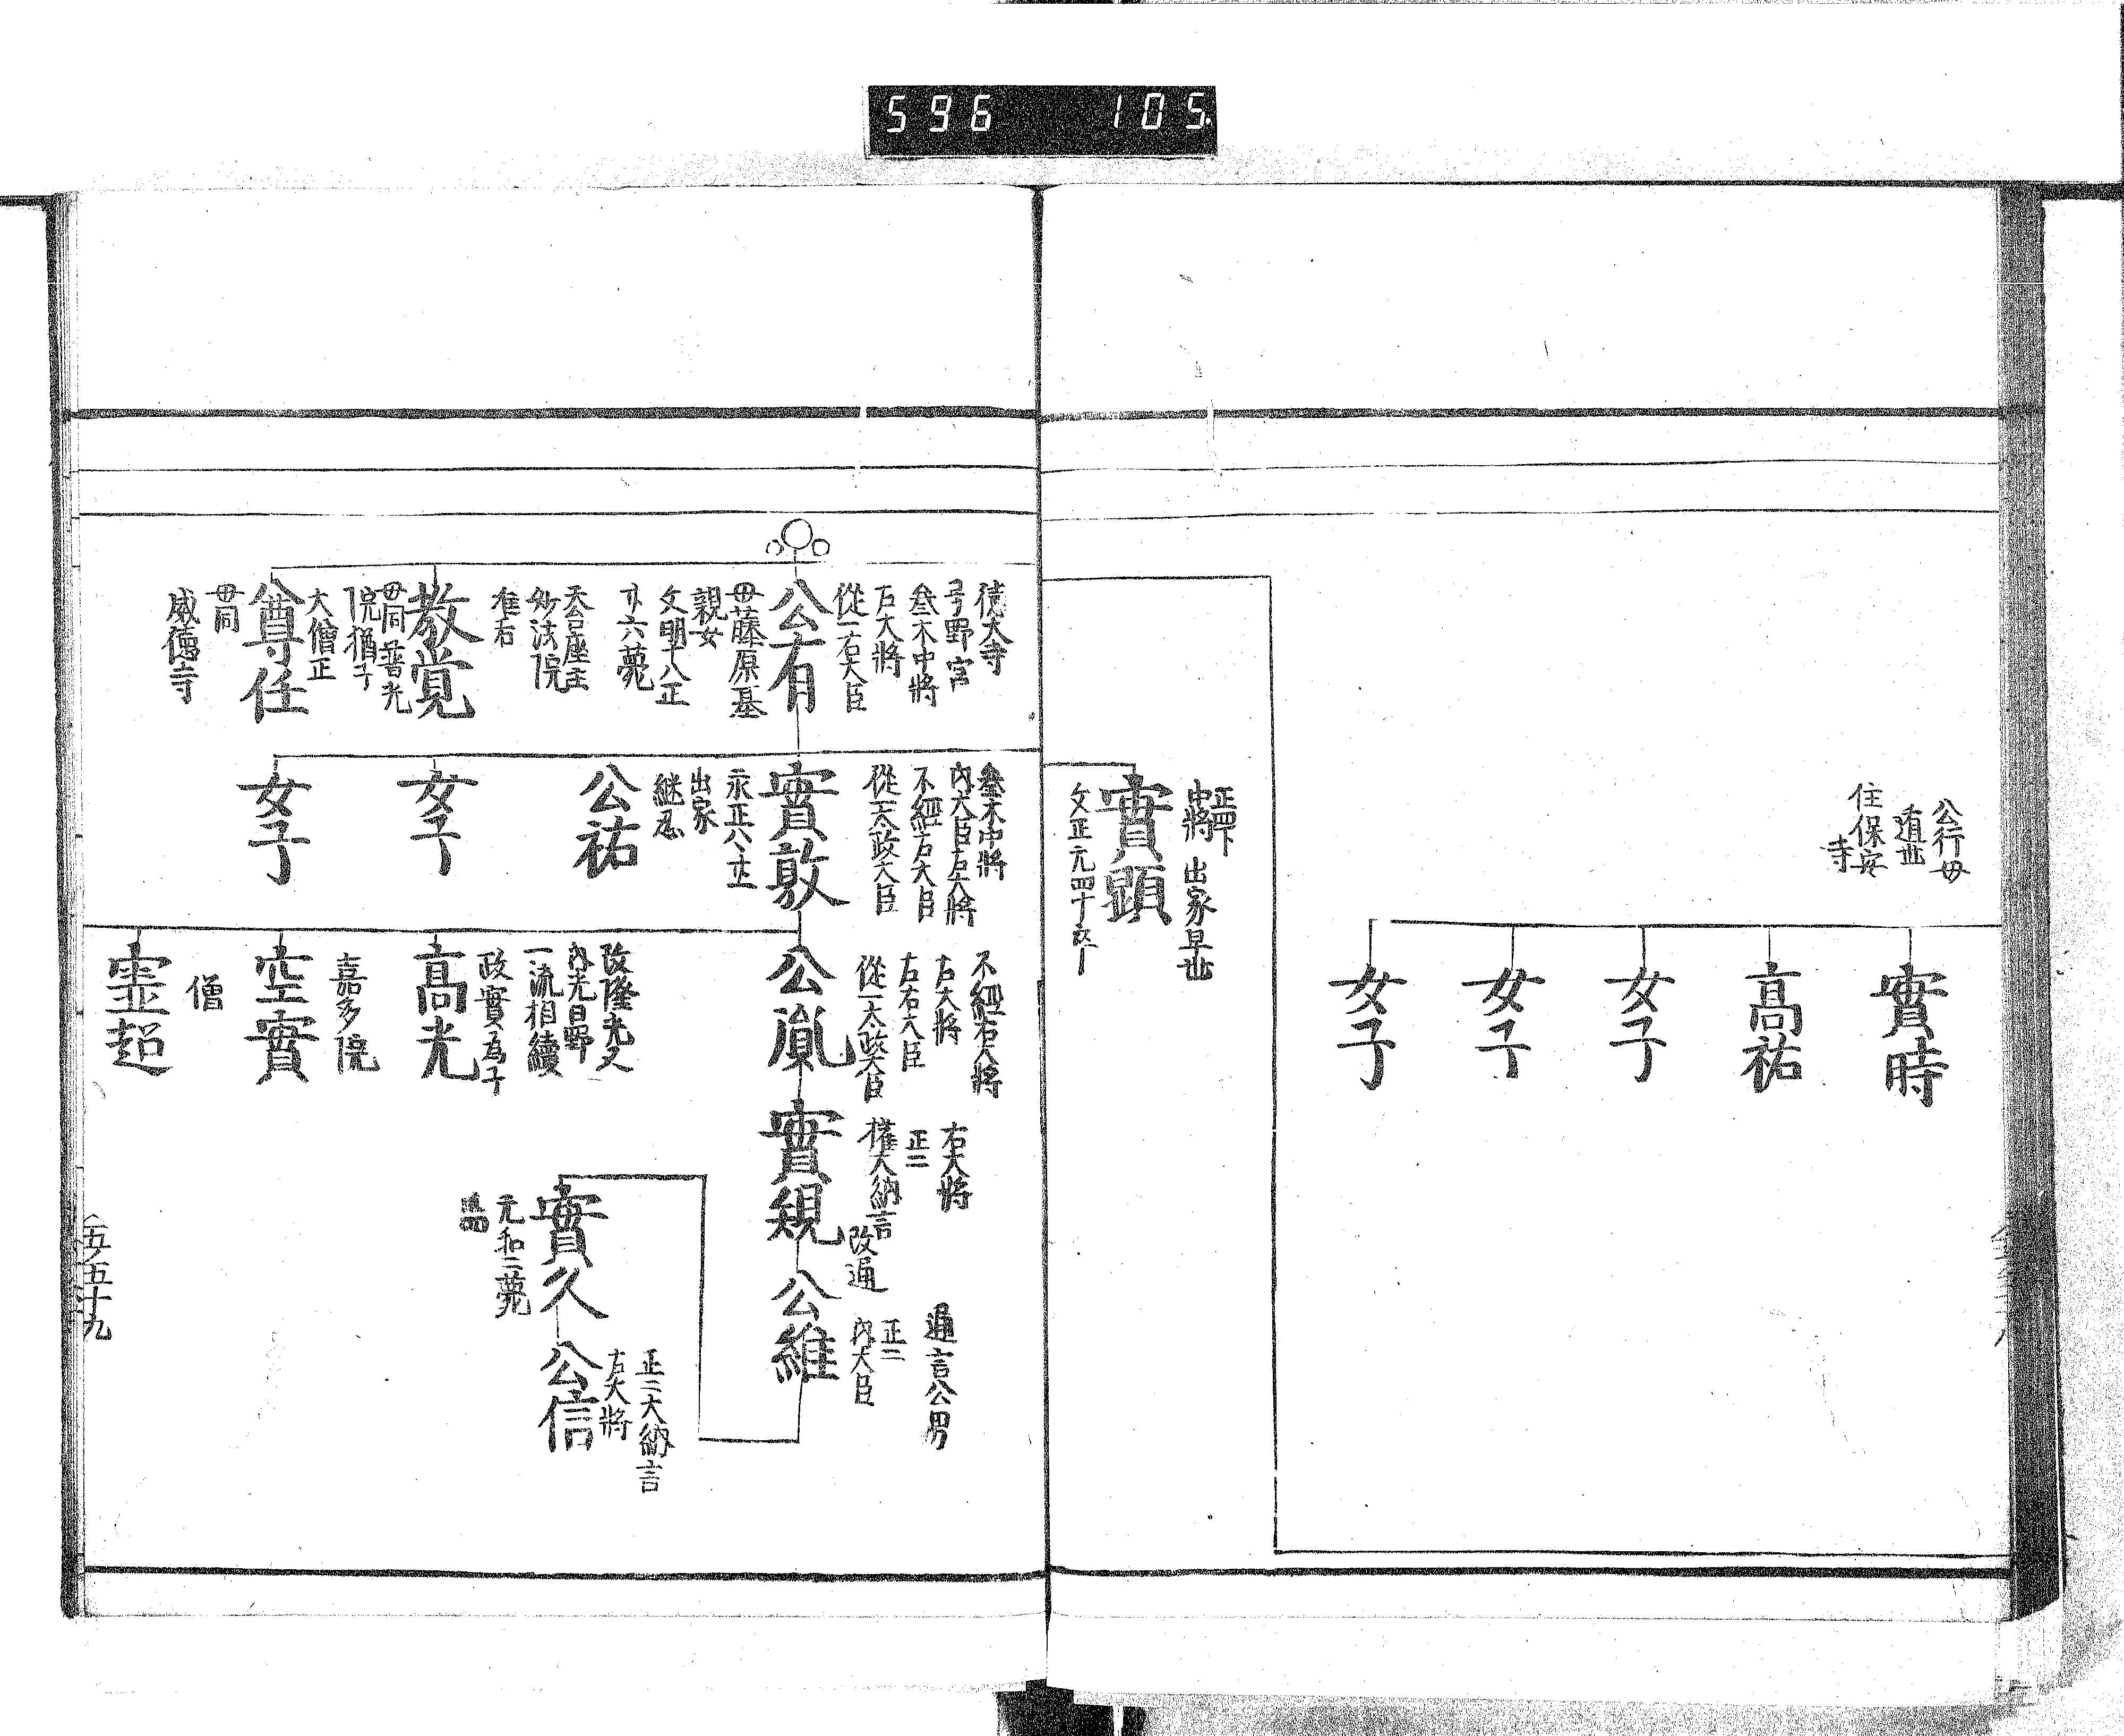 596 105
公行母
遁世
住保安
寺
實時
高祐
女子
女子
女子
正四下
中將 出家早世
實顕
文正元四十
德大寺
号野宮
叅木中將
右大將
從一右大臣
公有
母藤原基
親女
文明十八正
廿六薨
天台座主
妙法院
准后
教覚
母同 普光
院猶子
大僧正
尊任
母同
威德寺
叅木中將
內大臣左大將
不經右大臣
從一太政大臣
實敦
永正八
出家
継忍
公祐
女子
女子
不經右大將
左大將
左右大臣
從一太政大臣
公胤
改隆光又
內光日野
一流相續
政實為子
高光
嘉多院
空實
僧
霊超
右大將
正二
權大納言
改通
實規
通言公男
正二
內大臣
公維
實久
元和二薨
正二大納言
右大將
公信
五ノ五十九